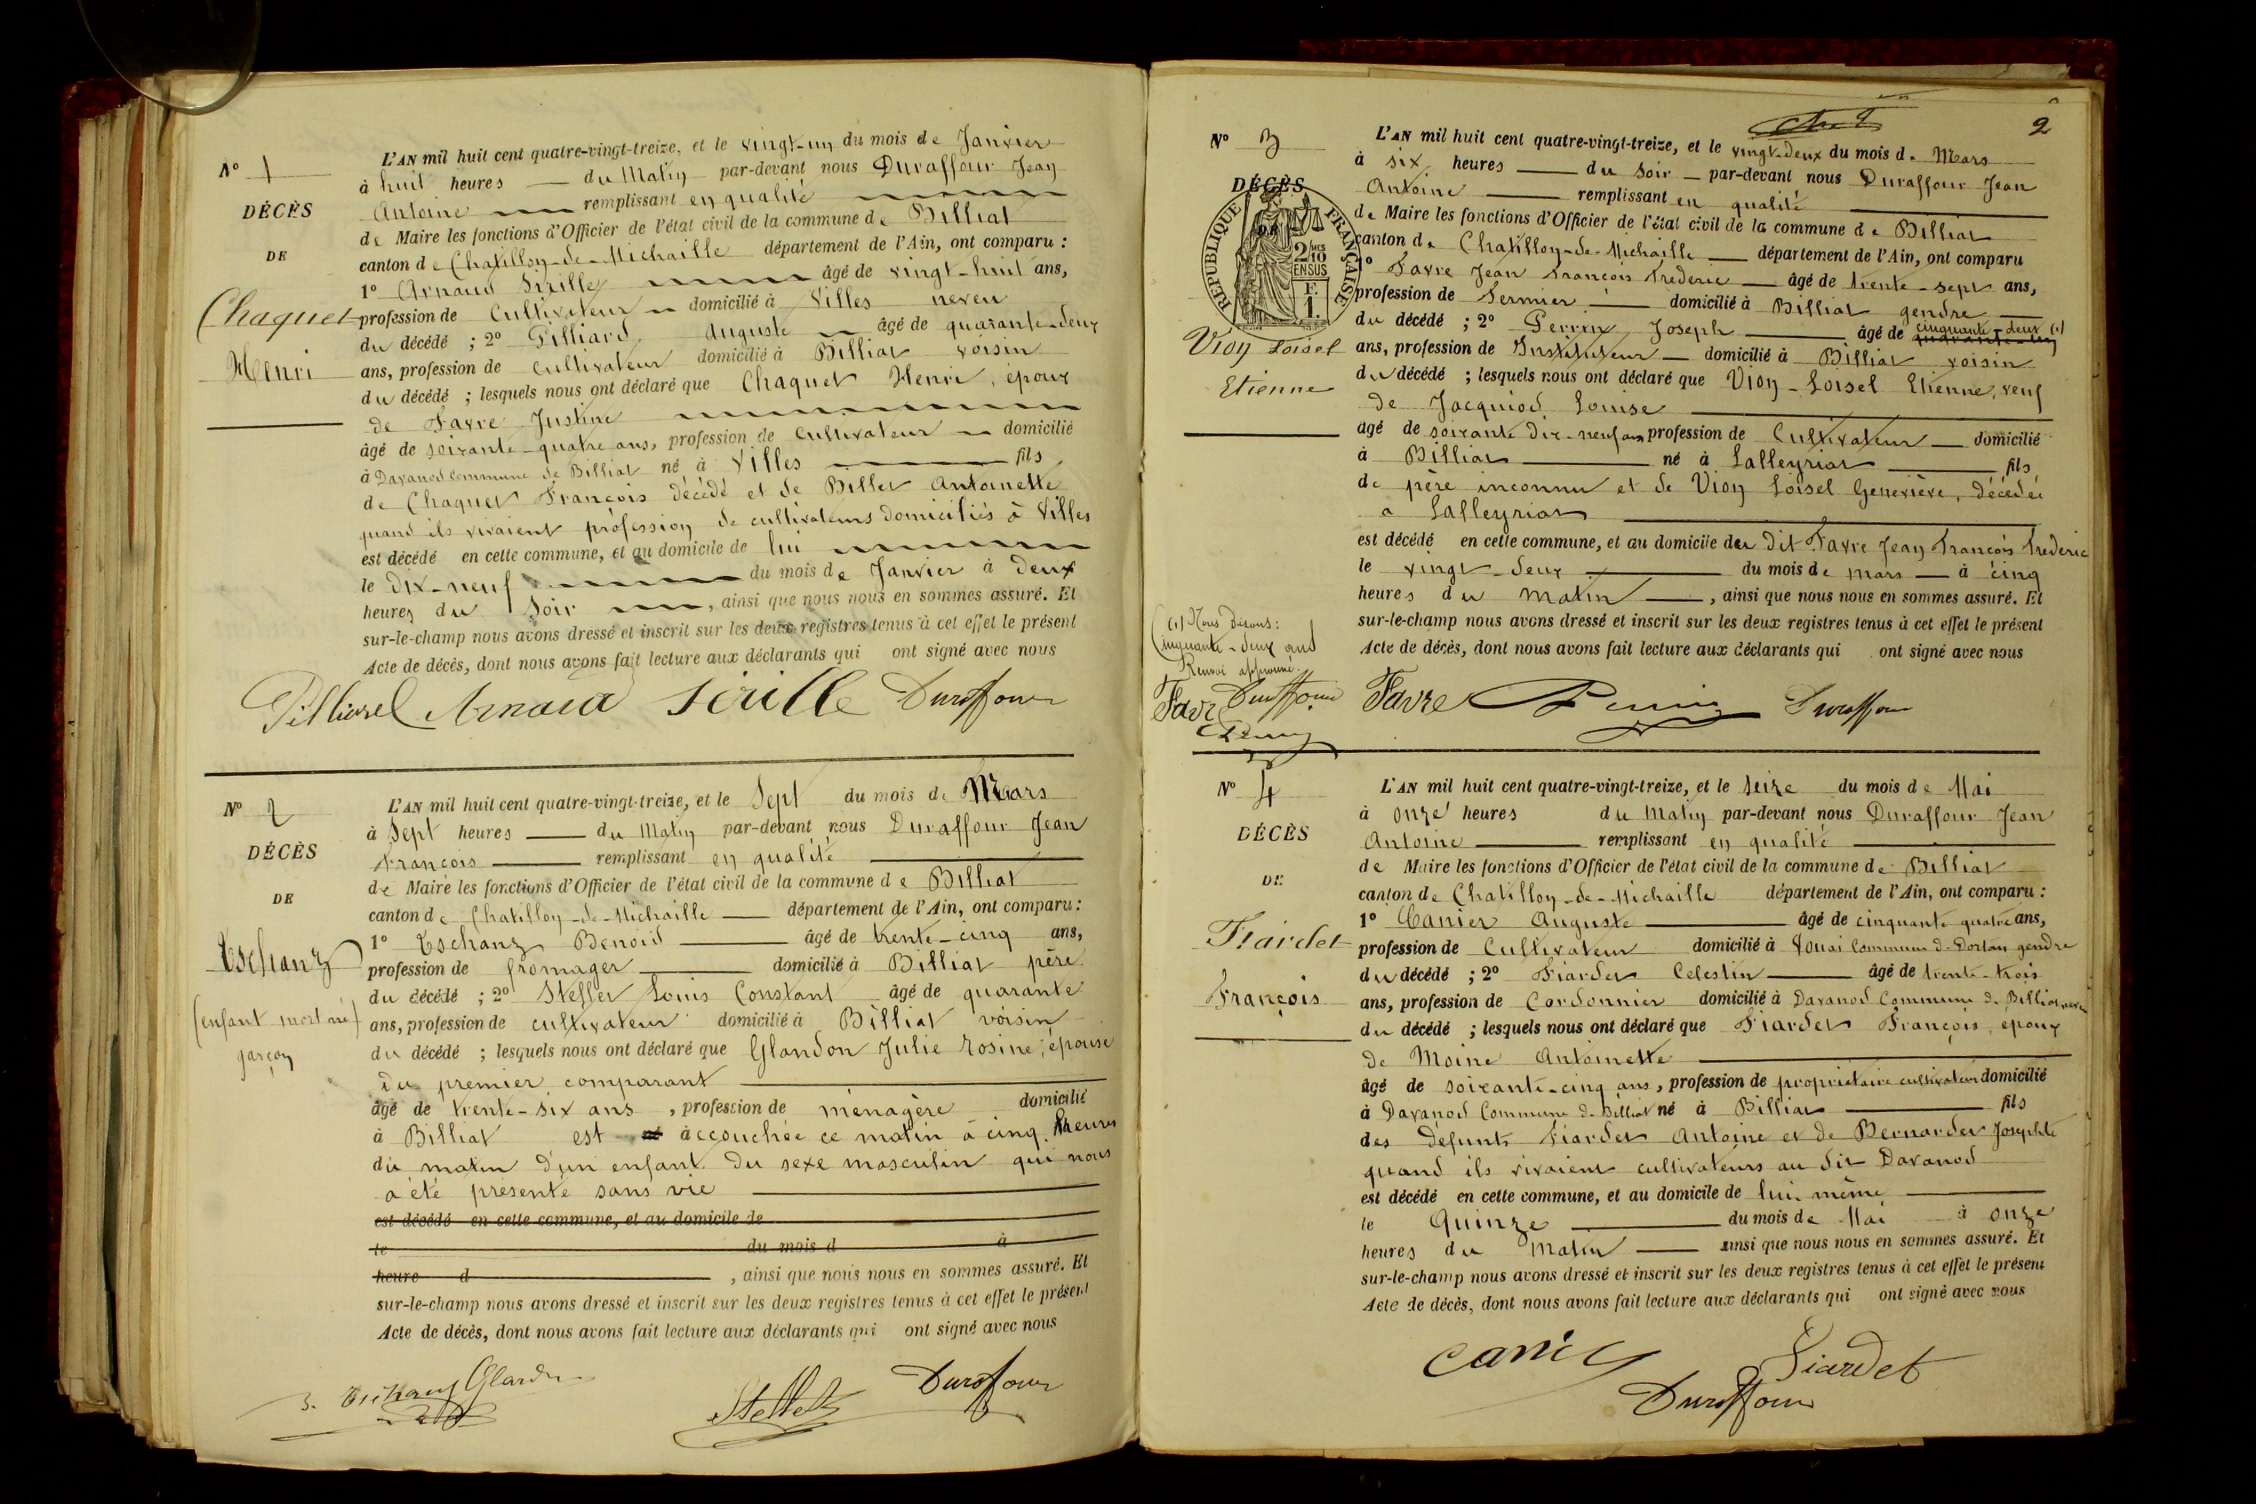 N° 1
DÉCÈS
DE
Chaquet
Henri
L'AN mil huit cent quatre-vingt-treize, et le vingt-un du mois de Janvier
à huit heures du Matin par-devant nous Duraffour Jean
Antoine remplissant en qualité
de Maire les fonctions d'Officier de l'état civil de la commune de Billiat
canton de Chatillon-de-Michaille département de l'Ain, ont comparu :
1° Arnaud Sirille âgé de vingt-huit ans,
profession de Cultivateur domicilié à Villes neveu
du décédé ; 2° Pilliard Auguste âgé de quarante-deux
ans, profession de cultivateur domicilié à Billiat voisin
du décédé ; lesquels nous ont déclaré que Chaquet Henri, époux
de Favre Justine
âgé de soixante-quatre ans, profession de cultivateur domicilié
à Davanod commune de Billiat né à Villes fils
de Chaquet François décédé et de Billet Antoinette
quand ils vivaient profession de cultivateurs domiciliés à Villes
est décédé en cette commune, et au domicile de lui
le Dix-neuf du mois de Janvier à deux
heures du Soir , ainsi que nous nous en sommes assuré. Et
sur-le-champ nous avons dressé et inscrit sur les deux registres tenus à cet effet le présent
Acte de décès, dont nous avons fait lecture aux déclarants qui ont signé avec nous
Pilliard Arnaud Sirille Duraffour
N° 2
DÉCÈS
DE
Tschanz
(enfant mort né)
garçon
L'AN mil huit cent quatre-vingt-treize, et le Sept du mois de Mars
à Sept heures du Matin par-devant nous Duraffour Jean
François remplissant en qualité
de Maire les fonctions d'Officier de l'état civil de la commune de Billiat
canton de Chatillon-de-Michaille département de l'Ain, ont comparu :
1° Tschanz Benoid âgé de trente-cinq ans,
profession de fromager domicilié à Billiat père
du décédé ; 2° Steffet Louis Constant âgé de quarante
ans, profession de cultivateur domicilié à Billiat voisin
du décédé ; lesquels nous ont déclaré que Glandon Julie Rosine, épouse
du premier comparant
âgé de trente-six ans , profession de ménagère domicilié
à Billiat est accouchée ce matin à cinq heures
du matin d'un enfant du sexe masculin qui nous
a été présenté sans vie
est décédé en cette commune, et au domicile de
le du mois d à
heure d , ainsi que nous nous en sommes assuré. Et
sur-le-champ nous avons dressé et inscrit sur les deux registres tenus à cet effet le présent
Acte de décès, dont nous avons fait lecture aux déclarants qui ont signé avec nous
Tschanz Glandon Duraffour
2
N° 3
DÉCÈS
RÉPUBLIQUE FRANÇAISE
2/10
EN SUS
F.
1.
Vion Loisel
Etienne
L'AN mil huit cent quatre-vingt-treize, et le vingt-deux du mois de Mars
à six heures du Soir par-devant nous Duraffour Jean
Antoine remplissant en qualité
de Maire les fonctions d'Officier de l'état civil de la commune de Billiat
canton de Chatillon-de-Michaille département de l'Ain, ont comparu
1° Favre Jean François Frederic âgé de trente-sept ans,
profession de Fermier domicilié à Billiat gendre
du décédé ; 2° Perrin Joseph âgé de cinquante-deux (1) quarante-cinq
ans, profession de Instituteur domicilié à Billiat voisin
du décédé ; lesquels nous ont déclaré que Vion-Loisel Etienne, veuf
de Jacquiod Louise
âgé de soixante dix-neuf ans profession de Cultivateur domicilié
à Billiat né à Lalleyriat fils
de père inconnu et de Vion Loisel Geneviève, décédée
à Lalleyriat
est décédé en cette commune, et au domicile du dit Favre Jean François Frederic
le vingt-deux du mois de mars à cinq
heures du matin , ainsi que nous nous en sommes assuré. Et
sur-le-champ nous avons dressé et inscrit sur les deux registres tenus à cet effet le présent
Acte de décès, dont nous avons fait lecture aux déclarants qui ont signé avec nous
(1) Nous disons :
Cinquante-deux ans
Renvoi approuvé.
Favre Duraffour
Perrin
Favre Perrin Duraffour
N° 4
DÉCÈS
DE
Fiardet
François
L'AN mil huit cent quatre-vingt-treize, et le seize du mois de Mai
à onze heures du Matin par-devant nous Duraffour Jean
Antoine remplissant en qualité
de Maire les fonctions d'Officier de l'état civil de la commune de Billiat
canton de Chatillon-de-Michaille département de l'Ain, ont comparu :
1° Canier Auguste âgé de cinquante quatre ans,
profession de Cultivateur domicilié à Commune de Dortan gendre
du décédé ; 2° Fiardet Celestin âgé de trente-trois
ans, profession de Cordonnier domicilié à Davanod Commune de Billiat neveu
du décédé ; lesquels nous ont déclaré que Fiardet François, époux
de Moine Antoinette
âgé de soixante-cinq ans, profession de propriétaire cultivateur domicilié
à Davanod Commune de Billiat né à Billiat fils
des défunts Fiardet Antoine et de Bernardet Josephte
quand ils vivaient cultivateurs au dit Davanod
est décédé en cette commune, et au domicile de lui même
le Quinze du mois de Mai à onze
heures du Matin ainsi que nous nous en sommes assuré. Et
sur-le-champ nous avons dressé et inscrit sur les deux registres tenus à cet effet le présent
Acte de décès, dont nous avons fait lecture aux déclarants qui ont signé avec nous
Canier Fiardet
Duraffour